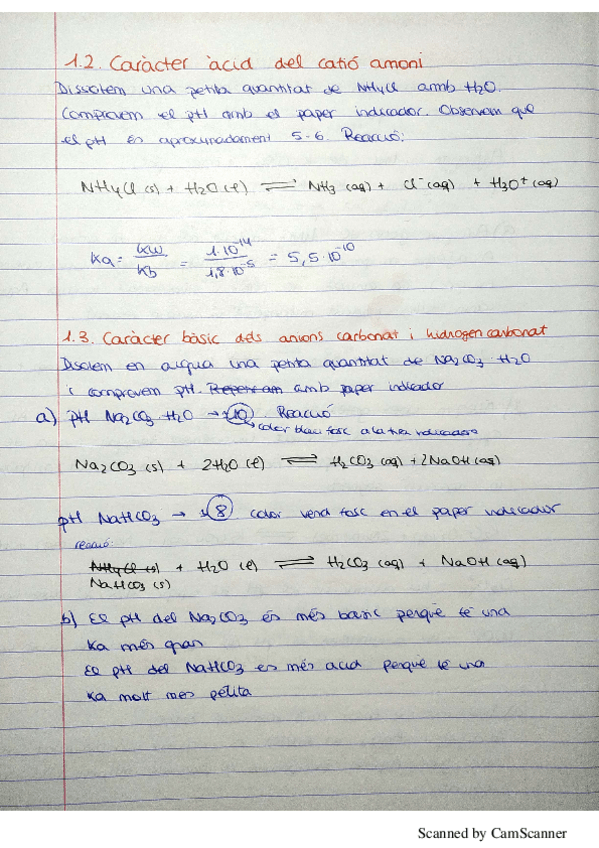 1.2. Caràcter àcid del catió amoni
Dissolem una petita quantitat de NH4Cl amb H2O.
Comprovem el pH amb el paper indicador. Observem que
el pH és aproximadament 5-6. Reacció:
NH4Cl (s) + H2O (l) ⇌ NH3 (aq) + Cl⁻ (aq) + H3O⁺ (aq)
Ka = Kw/Kb = 1·10⁻¹⁴/1,8·10⁻⁵ = 5,5·10⁻¹⁰
1.3. Caràcter bàsic dels anions carbonat i hidrogencarbonat
Disolem en aigua una petita quantitat de Na2CO3 H2O
i comprovem pH. amb paper indicador
a) pH Na2CO3 H2O → 10 Reacció
color blau fosc a la tira indicadora
Na2CO3 (s) + 2H2O (l) ⇌ H2CO3 (aq) + 2NaOH (aq)
pH NaHCO3 → 8 color verd fosc en el paper indicador
reacció:
NH4Cl (s) + H2O (l) ⇌ H2CO3 (aq) + NaOH (aq)
NaHCO3 (s)
b) El pH del Na2CO3 és més basic perque té una
Ka més gran
El pH del NaHCO3 es més acid perque té una
Ka molt mes petita
Scanned by CamScanner